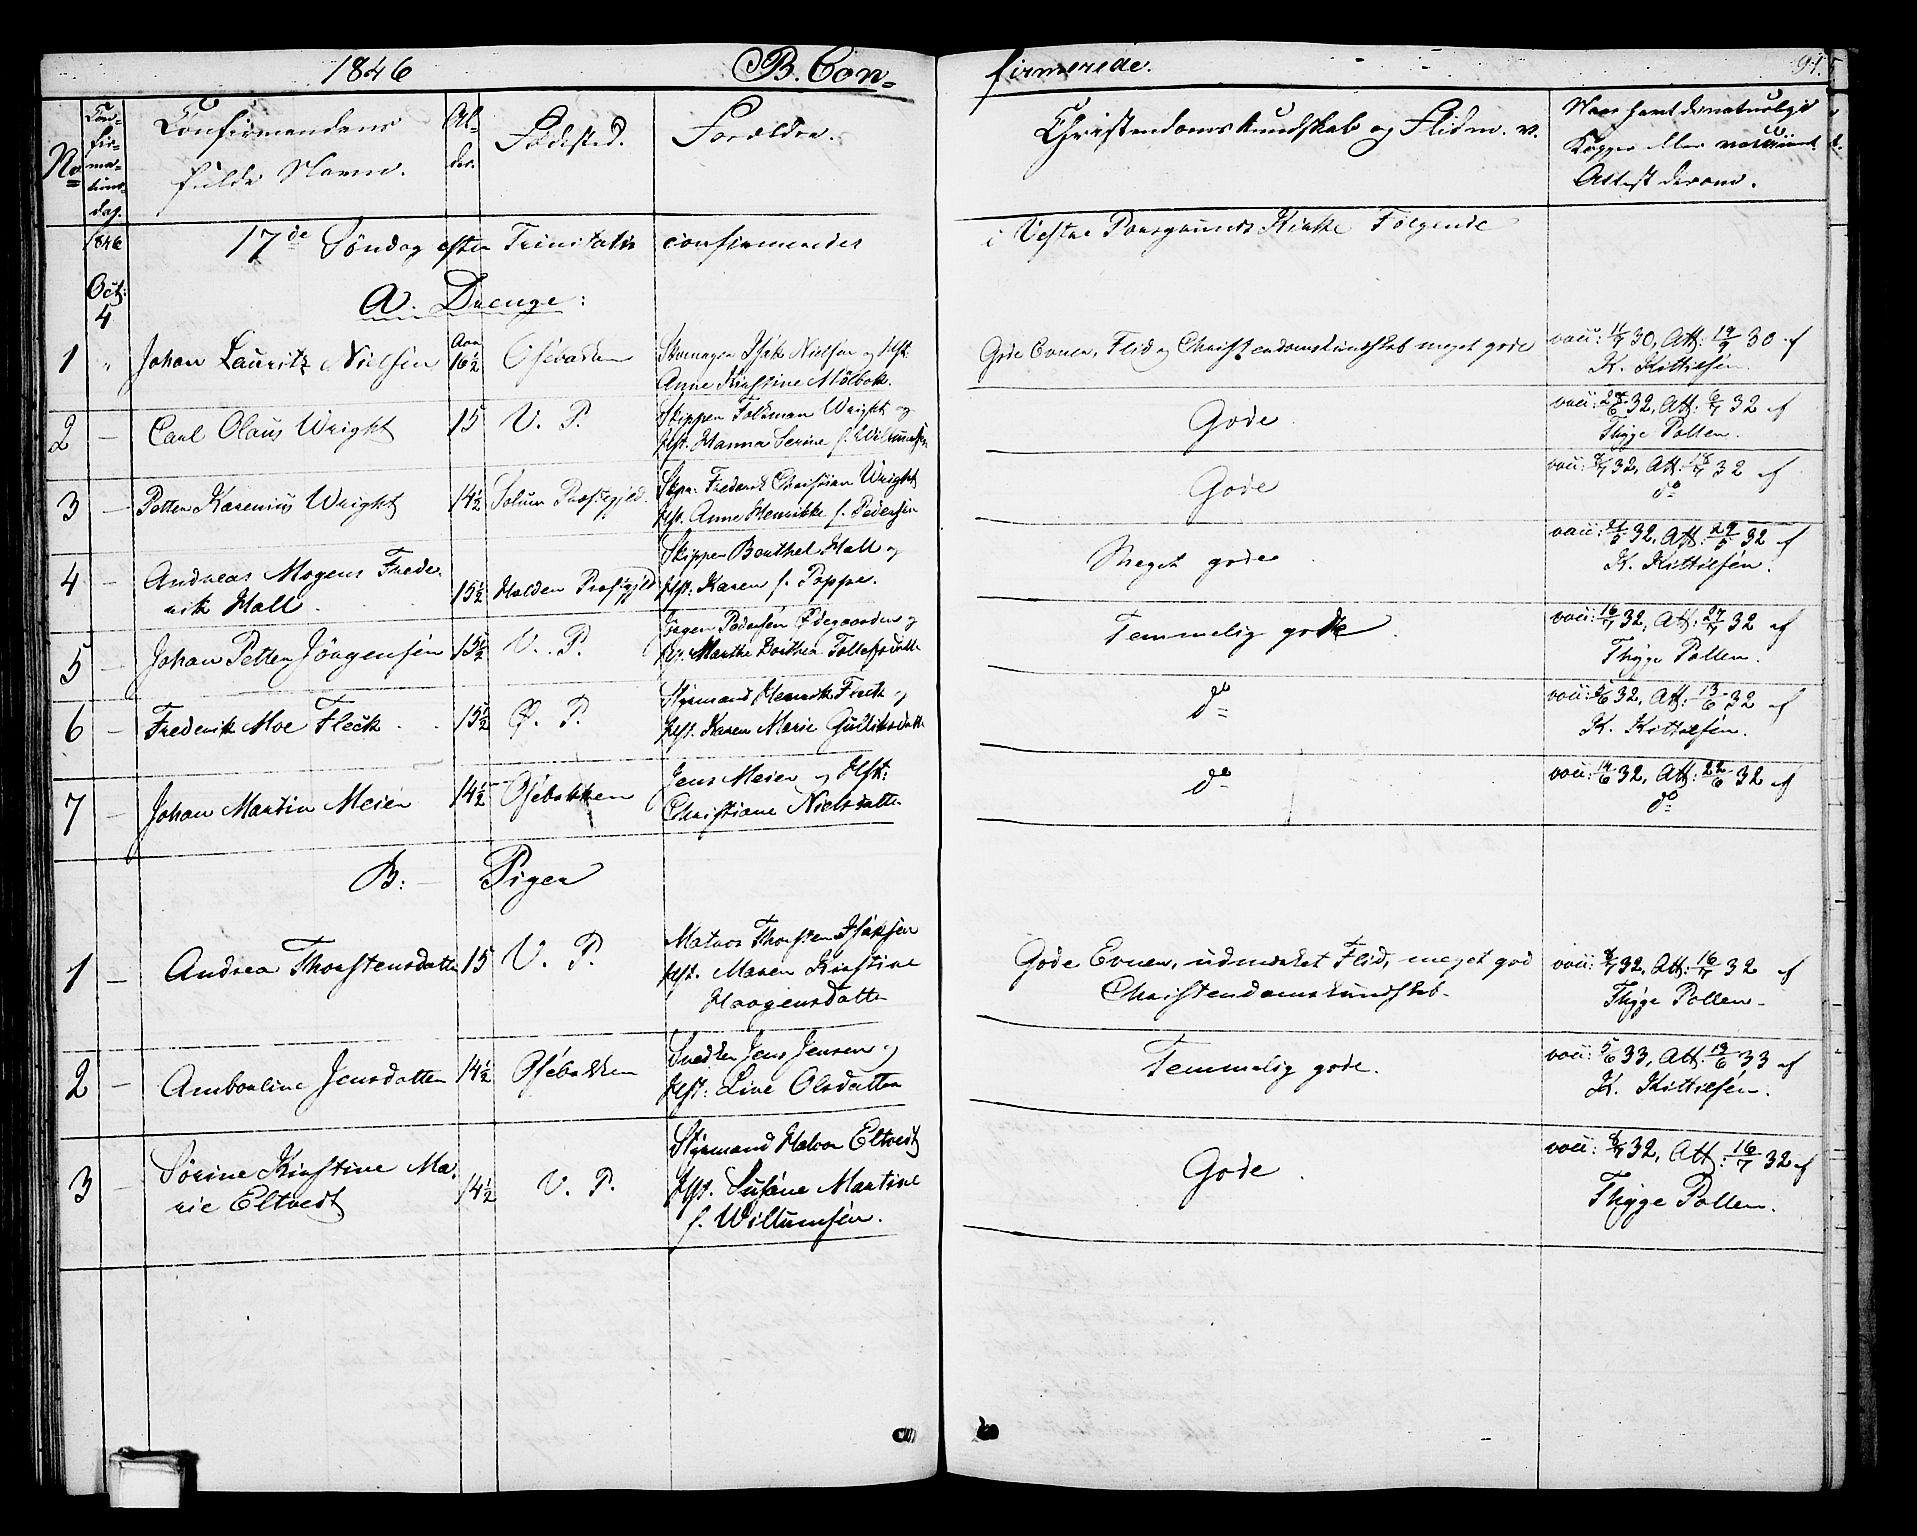 1846 B. Con= firmerede. 91.
No Con- fir- ma- tions- dag. Confirmandens fulde Navn. Al- der. Födested. Forældre. Christendomskundskab og Flid m. v. Naar havt de naturlige Kopper eller vaccineret Attest derom.
1846 17de Söndag efter Trinitatis confirmeredes i Vestre Porsgrunds Kirke Følgende
Oct: 4 A. Drenge:
1 " Johan Lauritz Nielsen Aar 16½ Osebakken Skomager Isak Nielsen og Hst: Gode Evner, Flid og Christendomskundskab meget gode vacc: 30, Att: 19/9 30 af
Anne Kirstine Mölbak. K. Kittilsen.
2 — Carl Olaus Wright 15 V. P. Skipper Folkman Wright og Gode. vacc: 32, Att: 6/7 32 af
Hst. Hanna Serine f. Willumsen Thyge Pollen.
3 — Petter Kasenius Wright 14½ Solum Præstegjeld. Skpr: Frederik Christian Wright Gode vacc: 8/7 32, Att: 18/7 32 af
Hst. Anne Henrikke f. Pedersen do
4 — Andreas Mogens Frede- Skipper Barthel Hall og Meget gode vacc: 21/5 32, Att: 29/5 32 af
rik Hall. 15½ Holden Præstegjeld Hst: Karen f. Poppe. K. Kittilsen.
5 — Johan Petter Jörgensen 15½ V. P. Jörgen Pedersen Ødegaarden og Temmelig gode. vacc: 16/7 32, Att: 27/7 32 af
Marthe Dorthea Tollefsdatter Thyge Pollen.
6 — Frederik Moe Fleck 15½ Ø. P. Styrmand Henrik Fleck og do vacc: 5/6 32, Att: 13/6 32 af
Hst. Karen Marie Gulliksdatter K. Kittilsen.
7 — Johan Martin Meier 14½ Osebakken Jens Meier og Hst: do vacc: 14/6 32, Att: 22/6 32 af
Christiane Nielsdatter do
B: — Piger
1 — Andrea Thorstensdatter 15 V. P. Matros Thorsten Isaksen Gode Evner, udmærket Flid, meget god vacc: 8/7 32, Att: 16/7 32 af
Hst. Maren Kirstine Christendomskundskab. Thyge Pollen.
Haagensdatter
2 — Ambroline Jensdatter 14½ Osebakken Snedker Jens Jensen og Temmelig gode. vacc: 5/6 33, Att: 13/6 33 af
Hst: Live Olsdatter K. Kittilsen.
3 — Sörine Kirstine Ma- Styrmand Halvor Eltvedt Gode. vacc: 8/7 32, Att: 16/7 32 af
rie Eltvedt 14½ V. P. Hst. Susane Martine Thyge Pollen.
f. Willumsen.